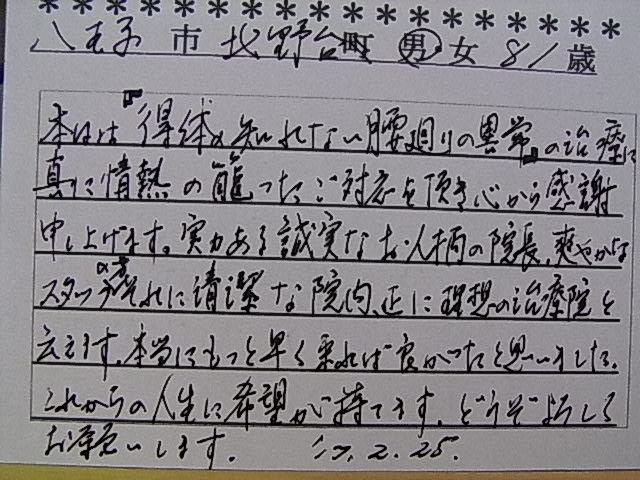 ＊＊＊＊＊＊＊＊＊＊＊＊＊＊＊＊＊＊＊
八王子 市 北野台町 男・女 81歳
『得体の知れない腰廻りの異常』の治療に
真に情熱の籠ったご対応を頂き心から感謝
申し上げます。実力ある誠実なお人柄の院長、爽やかな
スタッフの方それに清潔な院内、正に理想の治療院と
云えます。本当にもっと早く来れば良かったと思いました。
これからの人生に希望が持てます。どうぞよろしく
お願いします。 2.25.